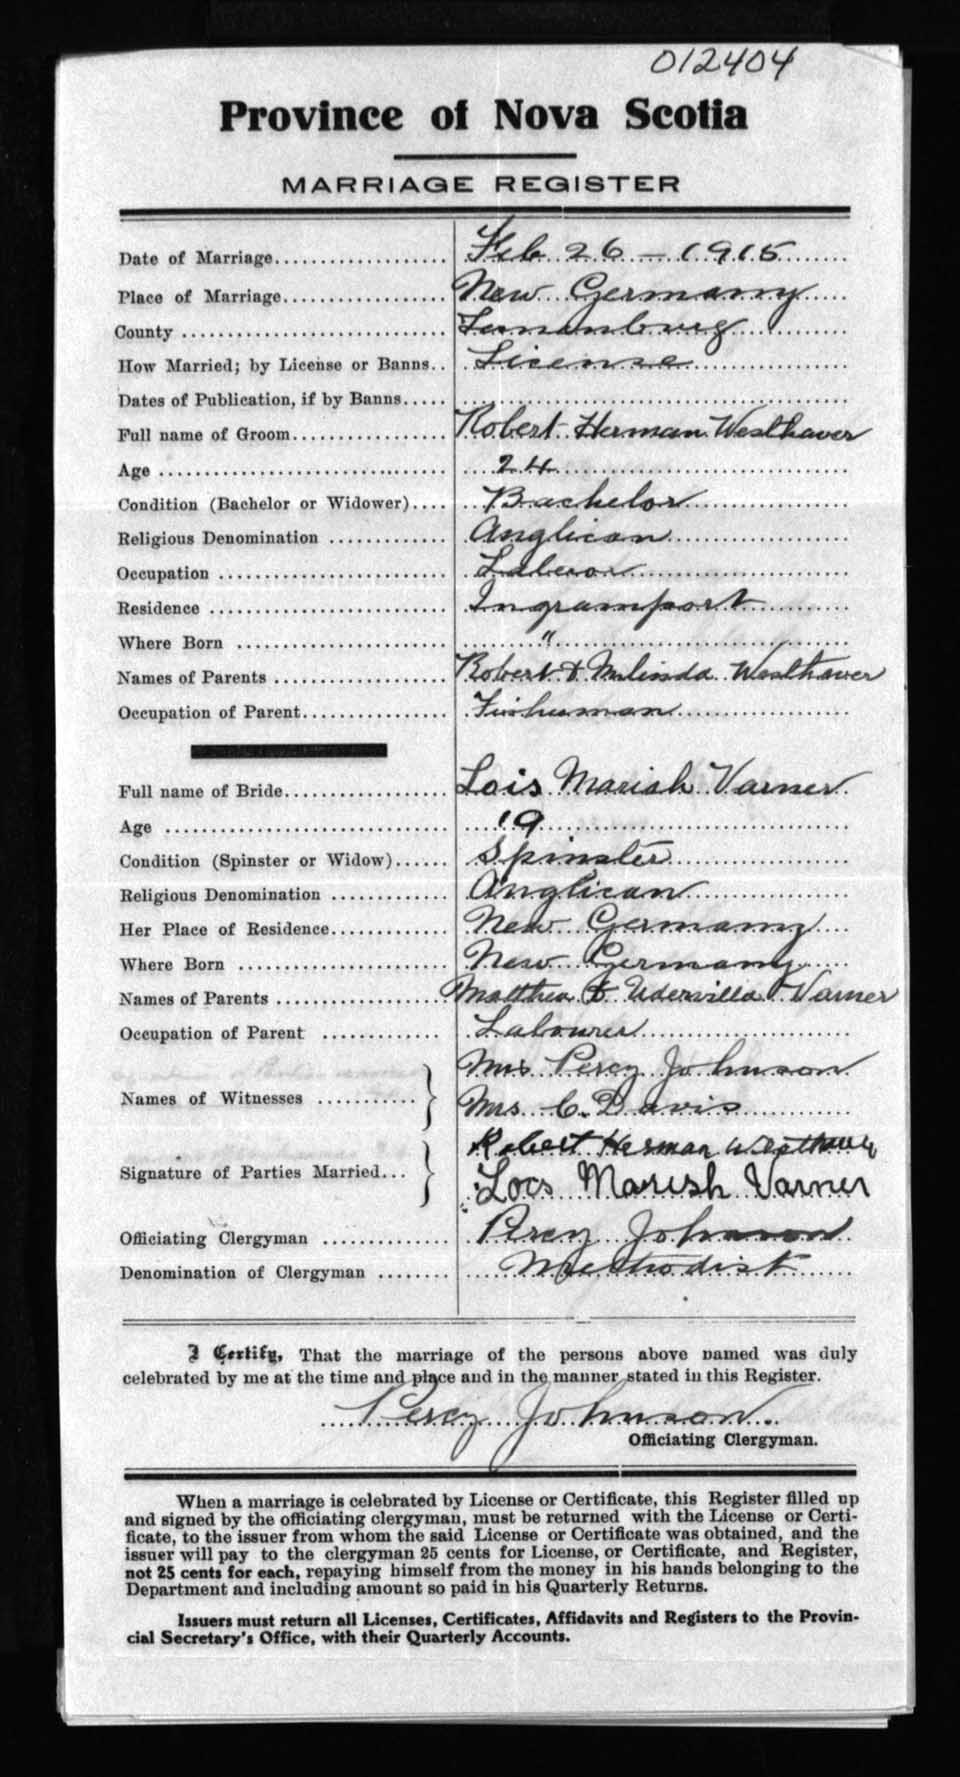 012404
Province of Nova Scotia
MARRIAGE REGISTER
Date of Marriage.................... Feb 26 - 1915
Place of Marriage.................. New Germany
County ............................ Lunenburg
How Married; by License or Banns.. License
Dates of Publication, if by Banns.....
Full name of Groom................. Robert Herman Westhaver
Age .............................. 24
Condition (Bachelor or Widower).... Bachelor
Religious Denomination ............. Anglican
Occupation ........................ Laberor
Residence ......................... Ingramport
Where Born ....................... "
Names of Parents .................. Robert & Melinda Westhaver
Occupation of Parent................ Fisherman
Full name of Bride.................. Lois Mariah Varner
Age .............................. 19
Condition (Spinster or Widow)...... Spinster
Religious Denomination ............ Anglican
Her Place of Residence............. New Germany
Where Born ....................... New Germany
Names of Parents .................. Matthew & Udervilla Varner
Occupation of Parent .............. Labourer
Mrs Percy Johnson
Names of Witnesses ............
Mrs. C. Davis
Robert Herman Westhaver
Signature of Parties Married...
Locs Marish Varner
Officiating Clergyman .............. Percy Johnson
Denomination of Clergyman ........ Methodist
I Certify, That the marriage of the persons above named was duly
celebrated by me at the time and place and in the manner stated in this Register.
Percy Johnson.
Officiating Clergyman.
When a marriage is celebrated by License or Certificate, this Register filled up
and signed by the officiating clergyman, must be returned with the License or Certi-
ficate, to the issuer from whom the said License or Certificate was obtained, and the
issuer will pay to the clergyman 25 cents for License, or Certificate, and Register,
not 25 cents for each, repaying himself from the money in his hands belonging to the
Department and including amount so paid in his Quarterly Returns.
Issuers must return all Licenses, Certificates, Affidavits and Registers to the Provin-
cial Secretary's Office, with their Quarterly Accounts.